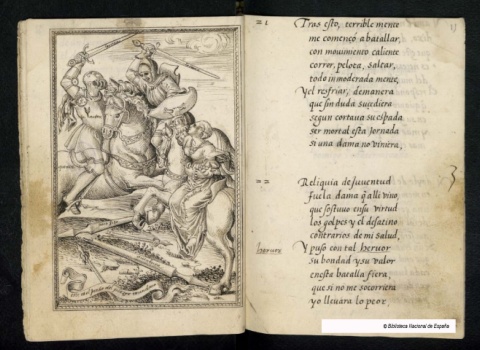 21
Tras esto, terrible mente
me començó a batallar,
con mouimiento caliente
correr, pelota, saltar,
todo inmoderada mente,
Y el resfriar, demanera
que sin duda sucediera
segun cortaua su espada
ser mortal esta Jornada
si una dama no viniera,
22
Reliquia de Juuentud
fue la dama q̃ alli vino,
que sostuuo en su virtud
los golpes y el desatino
contrarios de mi salud,
heruor
Y puso con tal heruor
su bondad y su valor
en esta batalla fiera,
que si no me socorriera
yo lleuara lo peor,
© Biblioteca Nacional de España